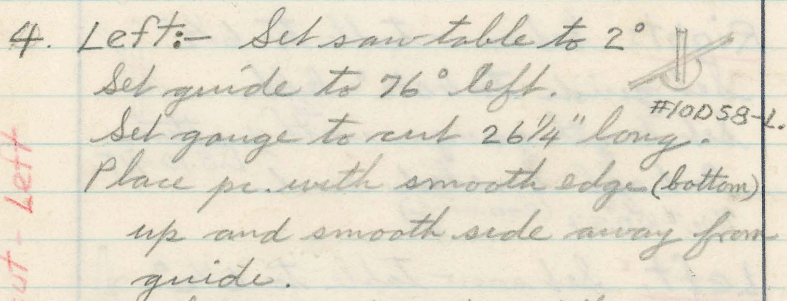 4. Left:- Set saw table to 2°
Set guide to 76° left.
#10D58-L.
Set gauge to cut 26 1/4" long.
Place pc. with smooth edge (bottom)
up and smooth side away from
guide.
ut - Left